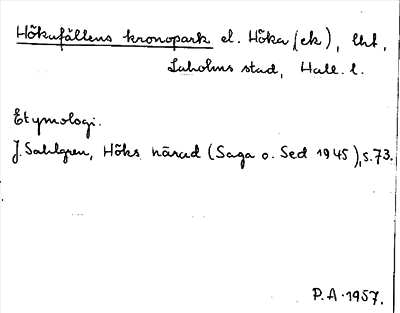 Hökufällens kronopark el. Höka (ek), lht,
Laholms stad, Hall. l.
Etymologi.
J. Sahlgren, Höks härad (Saga o. Sed 1945), s. 73.
P. A. 1957.